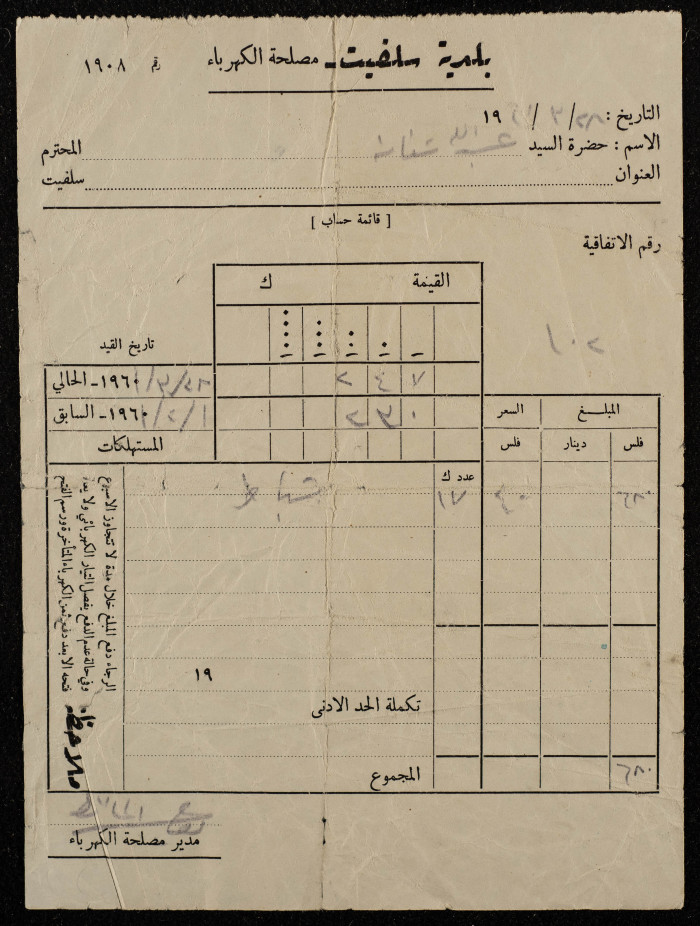 بلدية سلفيت - مصلحة الكهرباء رقم ١٩٠٨
التاريخ : ٢٨/ ٣ / ١٩
الاسم : حضرة السيد عبد الله المحترم
العنوان سلفيت
[ قائمة حساب ]
رقم الاتفاقية
٢٠١
القيمة ك
تاريخ القيد
١٩٦٠ - الحالي ٢ ٤ ٧
١٩٦٠ - السابق ٢ ٣ ٠
المستهلكات
المبلغ السعر
فلس دينار فلس
عدد ك
١٧ ٤٠ ٦٨٠
١٩
تكملة الحد الادنى
المجموع ٦٨٠
ملاحظة
الرجاء دفع المبلغ خلال مدة لا تتجاوز الاسبوع
وفي حالة عدم الدفع يفصل التيار الكهربائي ولا يعاد
فتحه الا بعد دفع ثمن الكهرباء المتأخرة ورسم الفتح
مدير مصلحة الكهرباء